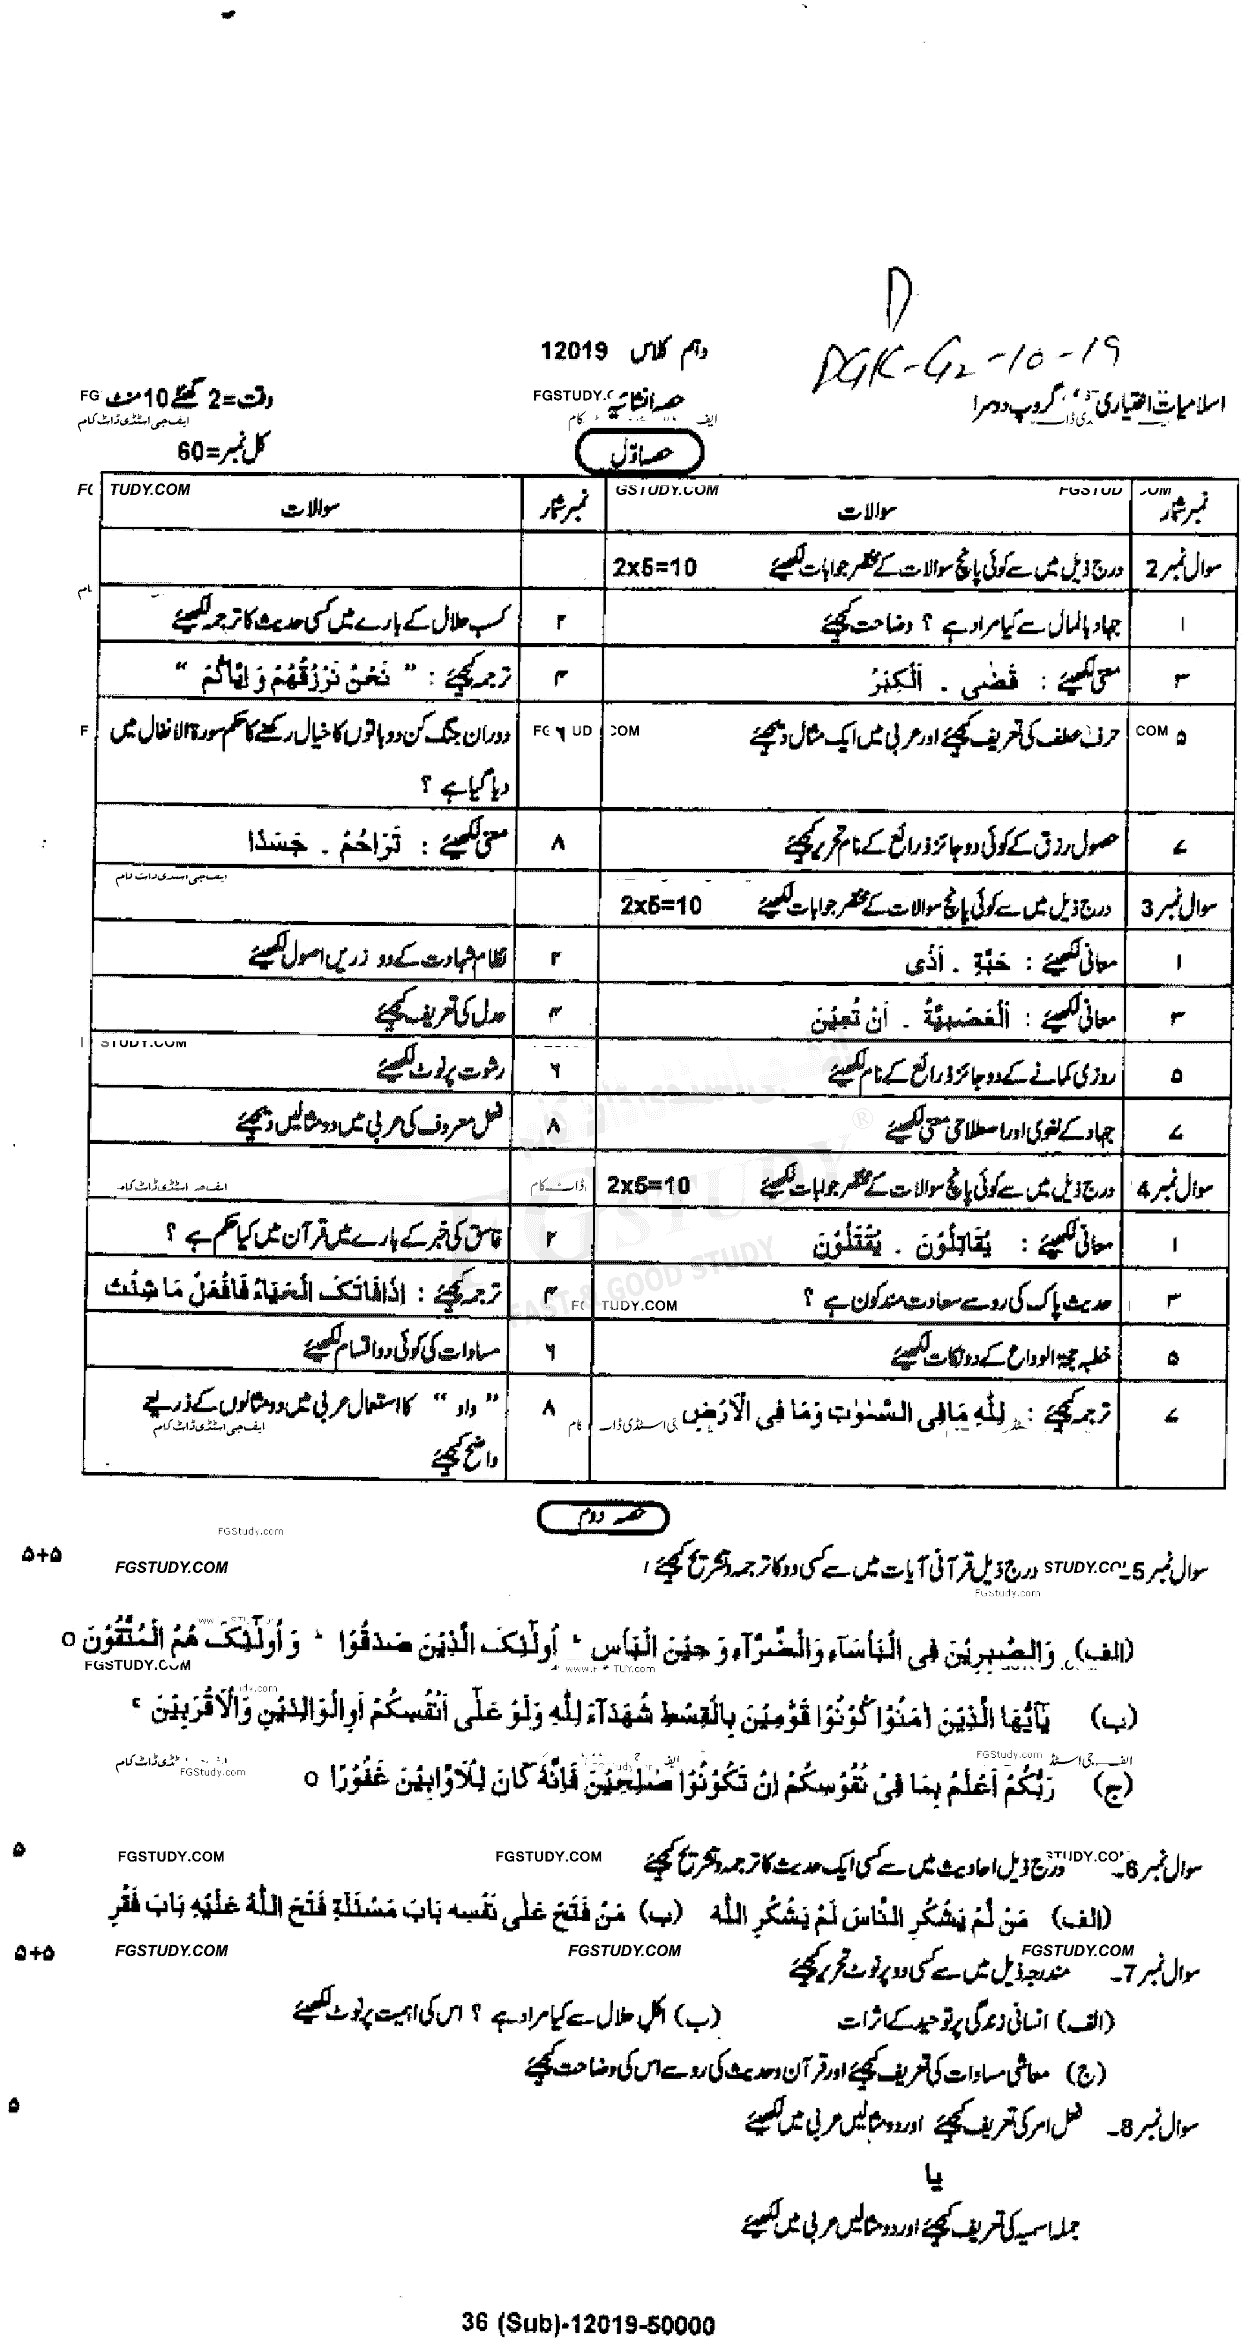 D
DGK-G2-10-19
دہم کلاس 12019
اسلامیات اختیاری گروپ دوسرا
حصہ انشائیہ
وقت=2 گھنٹے 10 منٹ
کل نمبر=60
حصہ اوّل
نمبر شمار سوالات نمبر شمار سوالات
سوال نمبر 2 درج ذیل میں سے کوئی پانچ سوالات کے مختصر جوابات لکھیئے 2x5=10
۱ جہاد بالمال سے کیا مراد ہے ؟ وضاحت کیجئے ۲ کسب حلال کے بارے میں کسی حدیث کا ترجمہ لکھیئے
۳ معنی لکھیئے : قَضٰی ۔ اَلْکِبَرُ ۴ ترجمہ کیجئے : " نَحْنُ نَرْزُقُهُمْ وَاِیَّاکُمْ "
۵ حرف عطف کی تعریف کیجئے اور عربی میں ایک مثال دیجئے ۶ دوران جنگ کن دو باتوں کا خیال رکھنے کا حکم سورۃ الانفال میں
دیا گیا ہے ؟
۷ حصول رزق کے کوئی دو جائز ذرائع کے نام تحریر کیجئے ۸ معنی لکھیئے : تَرَاحُمْ ۔ جَسَدًا
سوال نمبر 3 درج ذیل میں سے کوئی پانچ سوالات کے مختصر جوابات لکھیئے 2x5=10
۱ معانی لکھیئے : حَبَّةٍ ۔ اَذًی ۲ نظام شہادت کے دو زریں اصول لکھیئے
۳ معانی لکھیئے : اَلْعَصَبِیَّةُ ۔ اَنْ تُعِیْنَ ۴ عدل کی تعریف کیجئے
۵ روزی کمانے کے دو جائز ذرائع کے نام لکھیئے ۶ رشوت پر نوٹ لکھیئے
۷ جہاد کے لغوی اور اصطلاحی معنی لکھیئے ۸ فعل معروف کی عربی میں دو مثالیں دیجئے
سوال نمبر 4 درج ذیل میں سے کوئی پانچ سوالات کے مختصر جوابات لکھیئے 2x5=10
۱ معانی لکھیئے : یُقَاتِلُوْنَ ۔ یُقْتَلُوْنَ ۲ فاسق کی خبر کے بارے میں قرآن میں کیا حکم ہے ؟
۳ حدیث پاک کی رو سے سعادت مند کون ہے ؟ ۴ ترجمہ کیجئے : اِذَا فَاتَکَ الْحَیَاءُ فَافْعَلْ مَا شِئْتَ
۵ خطبہ حجۃ الوداع کے دو نکات لکھیئے ۶ مساوات کی کوئی دو اقسام لکھیئے
۷ ترجمہ کیجئے : لِلّٰهِ مَا فِی السَّمٰوٰتِ وَمَا فِی الْاَرْضِ ۸ " واو " کا استعمال عربی میں دو مثالوں کے ذریعے
واضح کیجئے
حصہ دوم
سوال نمبر 5۔ درج ذیل قرآنی آیات میں سے کسی دو کا ترجمہ و تشریح کیجئے ۵+۵
(الف) وَالصّٰبِرِیْنَ فِی الْبَاْسَآءِ وَالضَّرَّآءِ وَحِیْنَ الْبَاْسِ ط اُولٰٓئِکَ الَّذِیْنَ صَدَقُوْا ط وَ اُولٰٓئِکَ هُمُ الْمُتَّقُوْنَ o
(ب) یٰٓاَیُّهَا الَّذِیْنَ اٰمَنُوْا کُوْنُوْا قَوّٰمِیْنَ بِالْقِسْطِ شُهَدَآءَ لِلّٰهِ وَلَوْ عَلٰٓی اَنْفُسِکُمْ اَوِالْوَالِدَیْنِ وَالْاَقْرَبِیْنَ ج
(ج) رَبُّکُمْ اَعْلَمُ بِمَا فِیْ نُفُوْسِکُمْ اِنْ تَکُوْنُوْا صٰلِحِیْنَ فَاِنَّهٗ کَانَ لِلْاَوَّابِیْنَ غَفُوْرًا o
سوال نمبر 6۔ درج ذیل احادیث میں سے کسی ایک حدیث کا ترجمہ و تشریح کیجئے ۵
(الف) مَنْ لَمْ یَشْکُرِ النَّاسَ لَمْ یَشْکُرِ اللّٰه (ب) مَنْ فَتَحَ عَلٰی نَفْسِه بَابَ مَسْئَلَةٍ فَتَحَ اللّٰهُ عَلَیْهِ بَابَ فَقْرٍ
سوال نمبر 7۔ مندرجہ ذیل میں سے کسی دو پر نوٹ تحریر کیجئے ۵+۵
(الف) انسانی زندگی پر توحید کے اثرات (ب) اکل حلال سے کیا مراد ہے ؟ اس کی اہمیت پر نوٹ لکھیئے
(ج) معاشی مساوات کی تعریف کیجئے اور قرآن و حدیث کی رو سے اس کی وضاحت کیجئے
سوال نمبر 8۔ فعل امر کی تعریف کیجئے اور دو مثالیں عربی میں لکھیئے ۵
یا
جملہ اسمیہ کی تعریف کیجئے اور دو مثالیں عربی میں لکھیئے
36 (Sub)-12019-50000